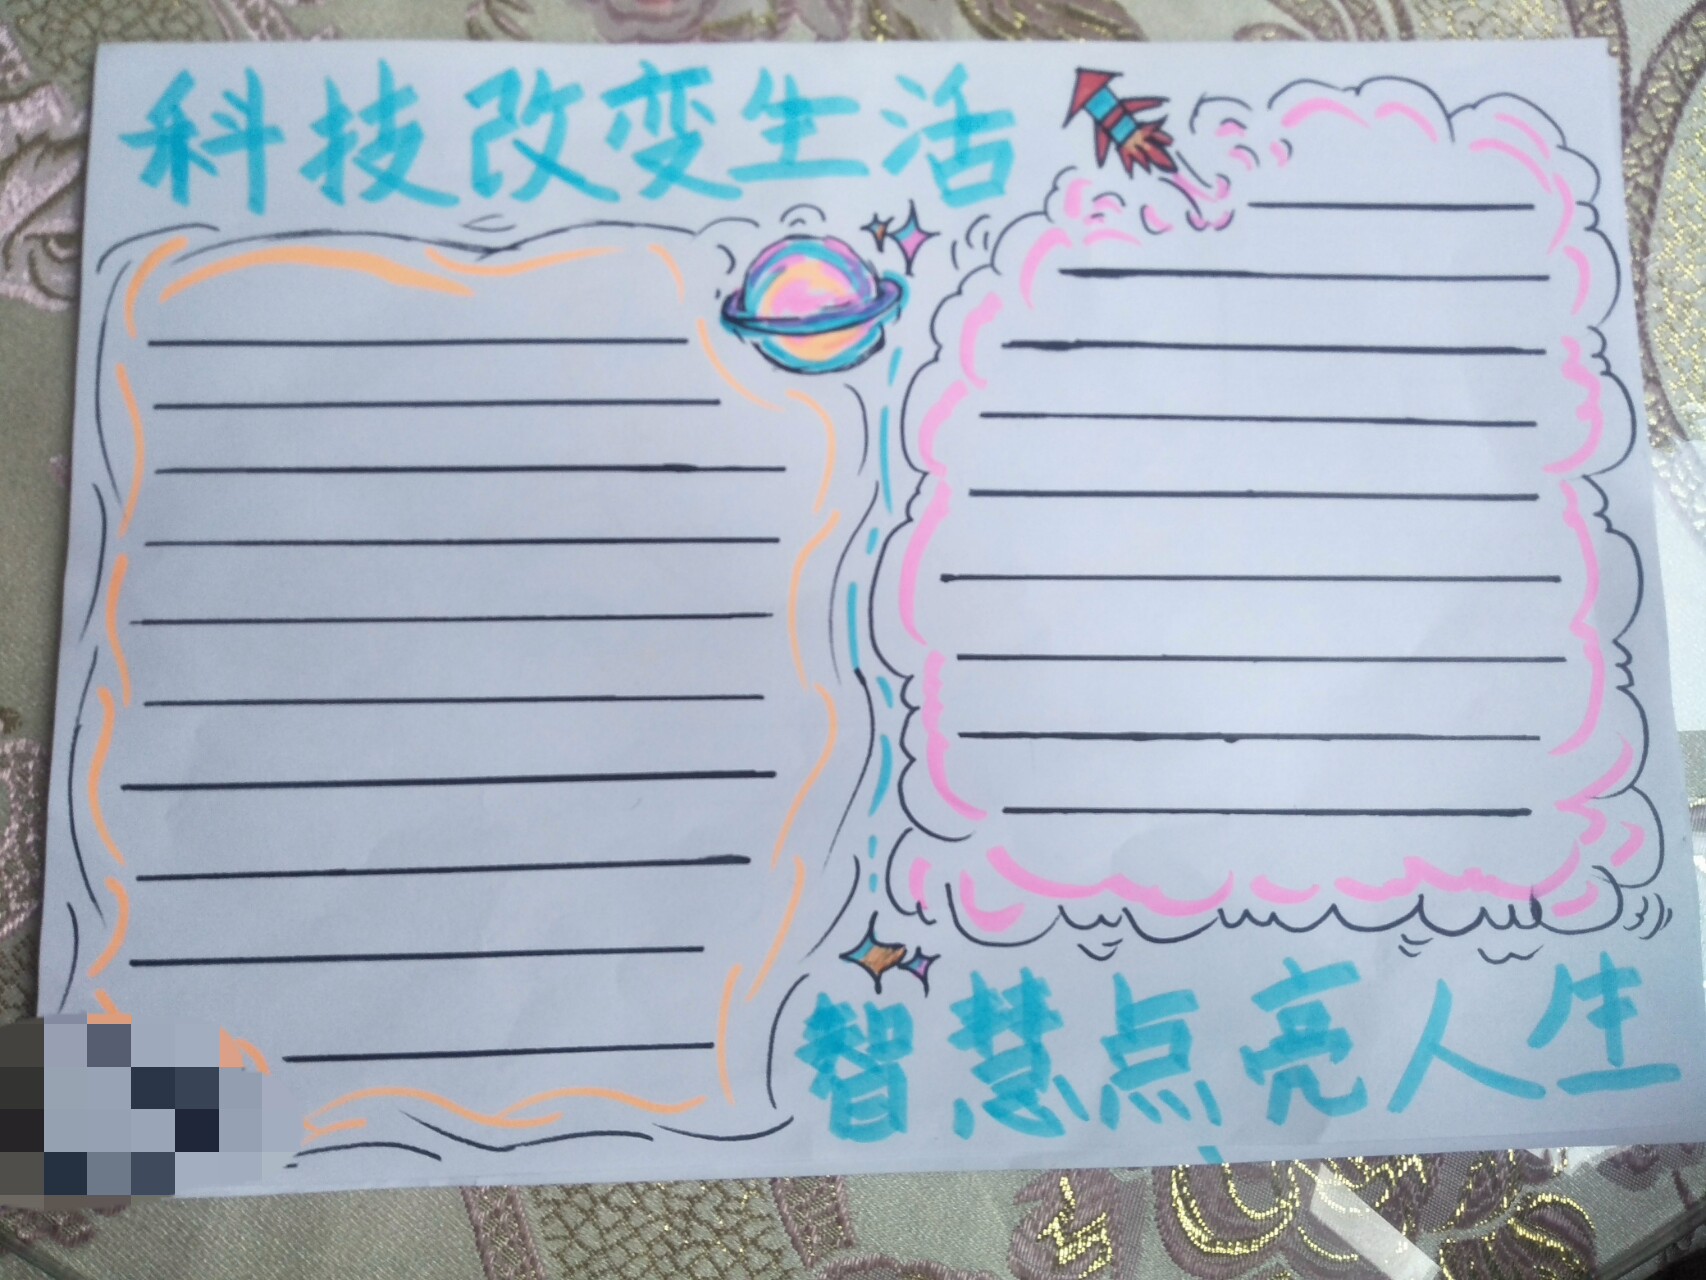 科技改变生活
智慧点亮人生